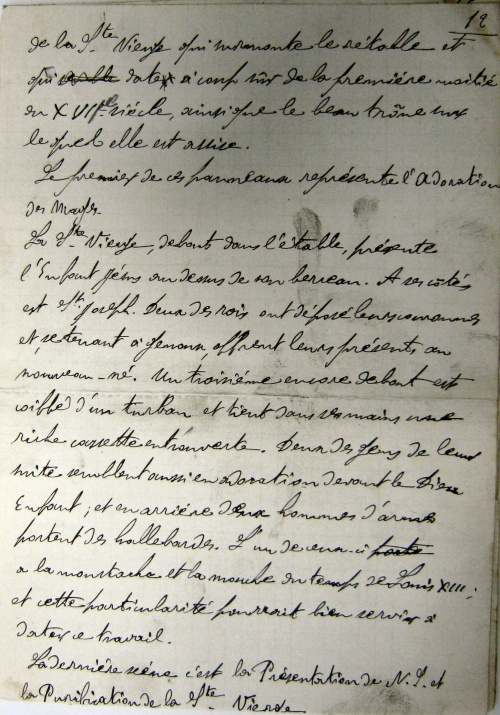 12
de la Ste Vierge qui surmonte le rétable et
qui semble dater à coup sûr de la première moitié
du XVIIe siècle, ainsi que le beau trône sur
lequel elle est assise.
Le premier de ces panneaux représente l'Adoration
des Mages.
La Ste Vierge, debout dans l'étable, présente
l'Enfant Jésus au dessus de son berceau. A ses côtés
est St Joseph. Deux des rois ont déposé leurs couronnes
et, se tenant à genoux, offrent leurs présents au
nouveau-né. Un troisième encore debout est
coiffé d'un turban et tient dans ses mains une
riche cassette entrouverte. Deux des gens de leur
suite semblent aussi en adoration devant le Dieu
Enfant ; et en arrière deux hommes d'armes
portent des hallebardes. L'un de ceux-ci porte
a la moustache et la mouche du temps de Louis XIII ;
et cette particularité pourrait bien servir à
dater ce travail.
La dernière scène c'est la Présentation de N. S. et
la Purification de la Ste Vierge